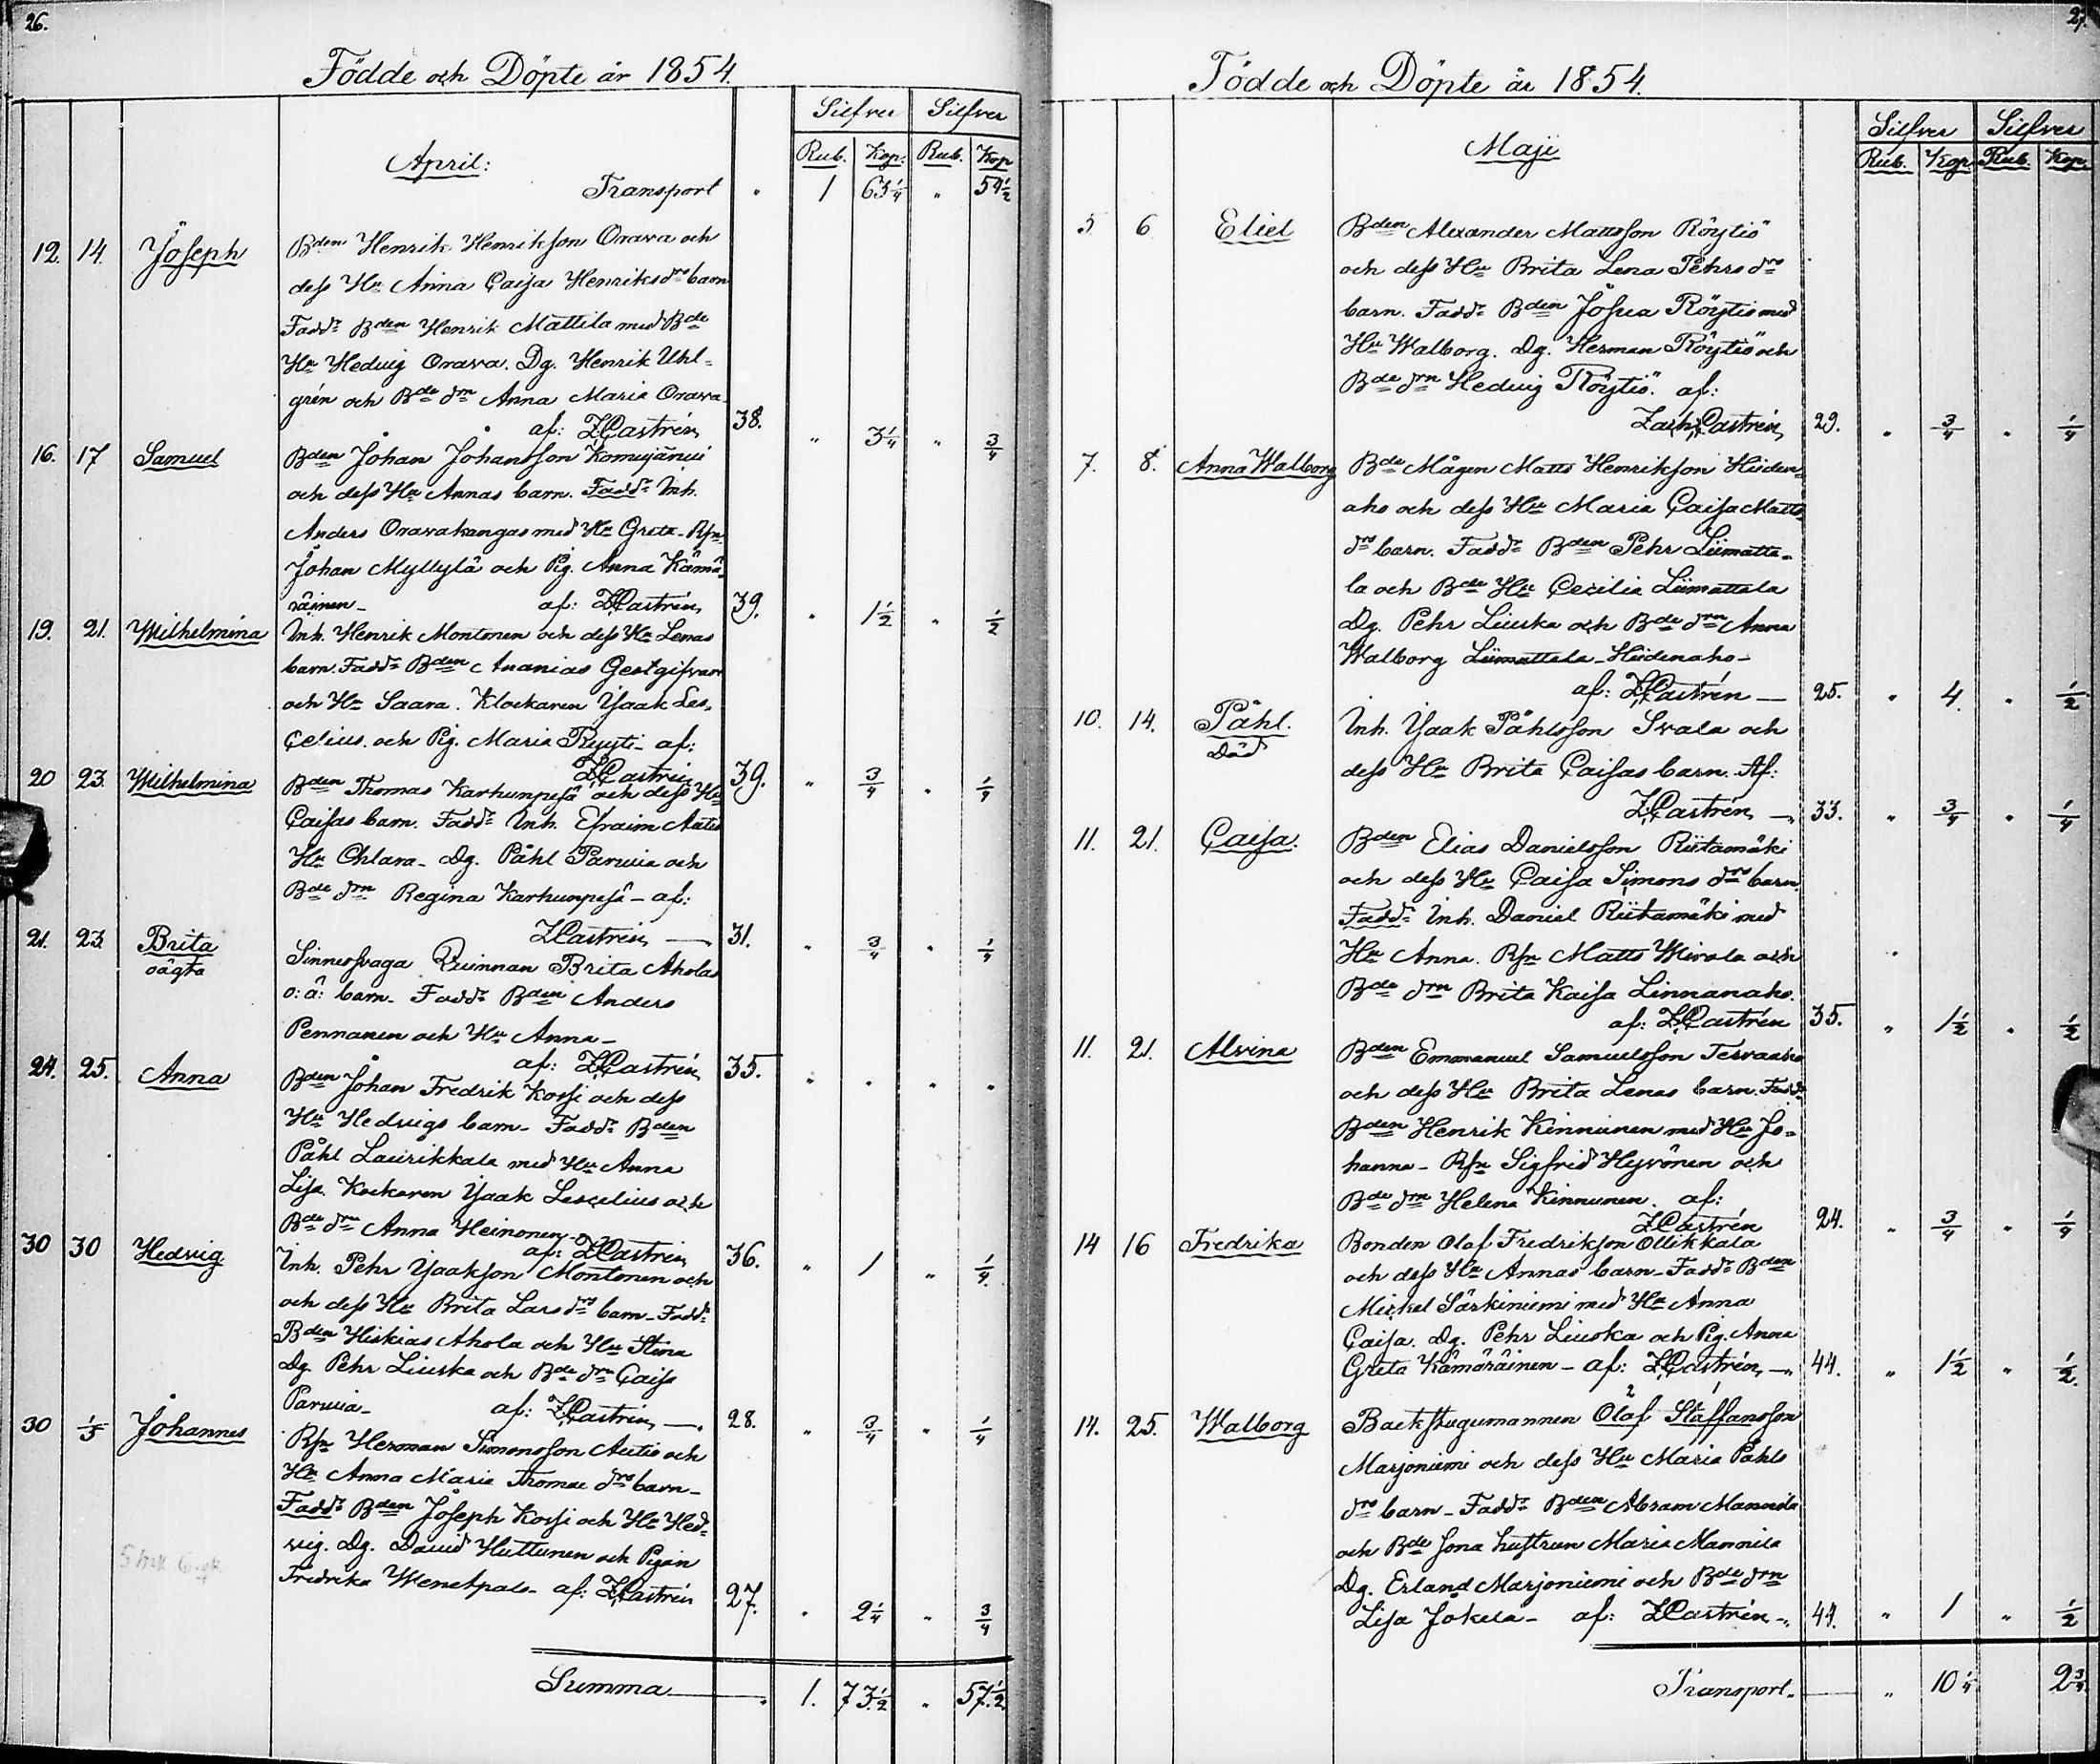 26.
Födde och Döpte år 1854.
Silfver Silfver
April: Rub. Kop: Rub. Kop
Transport " 1 63 1/4 " 54 1/2
12. 14. Joseph Bden Henrik Henriksson Orava och
dess Hu Anna Caisa Henriksdrs barn
Fadd: Bden Henrik Mattila med Bde
Hu Hedvig Orava. Dg. Henrik Uhl-
grén och Bde drn Anna Maria Orava-
af: Z.Castrén, 38. " 3 1/4 " 3/4
16. 17 Samuel Bden Johan Johansson Komujärvi
och dess Hu Annas barn. Fadd: Inh.
Anders Oravakangas med Hu Greta- Rfn
Johan Myllylä och Pig. Anna Kämä-
räinen- af: Z.Castrén, 39. " 1 1/2 " 1/2
19. 21. Wilhelmina Inh. Henrik Montonen och dess Hu Lenas
barn. Fadd: Bden Ananias Gestgifvare
och Hu Saara. Klockaren Isaak Les-
celius. och Pig. Maria Ryyti- af:
Z.Castrén 39. " 3/4 " 1/4
20 23. Wilhelmina Bden Thomas Karhunpesä och dess Hu
Caisas barn. Fadd: Inh. Efraim Autio
Hu Chlara- Dg. Påhl Parvia och
Bde drn Regina Karhunpesä- af:
Z.Castrén, — 31. " 3/4 " 1/4
21. 23. Brita Sinnessvaga Quinnan Brita Aholas
oägta o: ä: barn- Fadd: Bden Anders
Pennanen och Hu Anna-
af: Z.Castrén, 35. " " " "
24. 25. Anna Bden Johan Fredrik Kossi och dess
Hu Hedvigs barn- Fadd: Bden
Påhl Laurikkala med Hu Anna
Lisa. Kockaren Isaak Lescelius och
Bde drn Anna Heinonen-
af: Z.Castrén, 36. " 1 " 1/4.
30 30 Hedvig Inh. Pehr Isaaksson Montonen och
och dess Hu Brita Larsdrs barn- Fadd:
Bden Hiskias Ahola och Hu Stina
Dg. Pehr Liuska och Bde drn Caisa
Parvia- af: Z.Castrén, —. 28. " 3/4 " 1/4
30 1/5 Johannes Rfn Herman Simonsson Autio och
Hu Anna Maria Thomae drs barn-
Fadd: Bden Joseph Kossi och Hu Hed-
vig. Dg. David Huttunen och Pigan
Fredrika Wenetpalo- af: Z.Castrén 27. " 2 1/4 " 3/4
Summa — " 1. 73 1/2 " 57. 1/2
27.
Födde och Döpte år 1854.
Silfver Silfver
Maji Rub. Kop. Rub. Kop.
5 6 Eliel Bden Alexander Mattsson Röytiö
och dess Hu Brita Lena Pehrs drs
barn. Fadd: Bden Josua Röytiö med
Hu Walborg. Dg. Herman Röytiö och
Bde drn Hedvig Röytiö. af:
Zach: Castrén, 29. " 3/4 " 1/4
7. 8. Anna Walborg Bde Mågen Matts Henriksson Hiiden-
aho och dess Hu Maria Caisa Matts-
drs barn. Fadd: Bden Pehr Liimatta-
la och Bde Hu Cecilia Liimattala
Dg. Pehr Liuska och Bde drn Anna
Walborg Liimattala- Hiidenaho-
af: Z.Castrén — 25. " 4. " 1/2
10. 14. Påhl. Inh. Isaak Påhlsson Svala och
Död dess Hu Brita Caisas barn. Af:
Z.Castrén, — 33. " 3/4 " 1/4
11. 21. Caisa. Bden Elias Danielsson Riitamäki
och dess Hu Caisa Simons drs barn.
Fadd: Inh. Daniel Riitamäki med
Hu Anna. Rfn Matts Mirola och
Bde drn Brita Kaisa Linnanaho.
af: Z.Castrén 35. " 1 1/2 " 1/2
11. 21. Alvina Bden Emmanuel Samuelsson Tervaaho
och dess Hu Brita Lenas barn. Fadd:
Bden Henrik Kinnunen med Hu Jo-
hanna- Rfn Sigfrid Hyvönen och
Bde drn Helena Kinnunen. af:
Z.Castrén 24. " 3/4 " 1/4
14 16 Fredrika Bonden Olof Fredriksson Ollikkala
och dess Hu Annas barn- Fadd: Bden
Mickel Särkiniemi med Hu Anna
Caisa. Dg. Pehr Liuska och Pig. Anna
Greta Kämäräinen- af: Z.Castrén, — 44. " 1 1/2 " 1/2.
14. 25. Walborg Backstugumannen Olof Staffansson
Marjoniemi och dess Hu Maria Påhls
drs barn- Fadd: Bden Abram Mannila
och Bde sona hustrun Maria Mannila
Dg. Erland Marjoniemi och Bde drn
Lisa Jokela- af: Z.Castrén- 41. " 1 " 1/2
Transport. — " 10 1/4 2 3/4